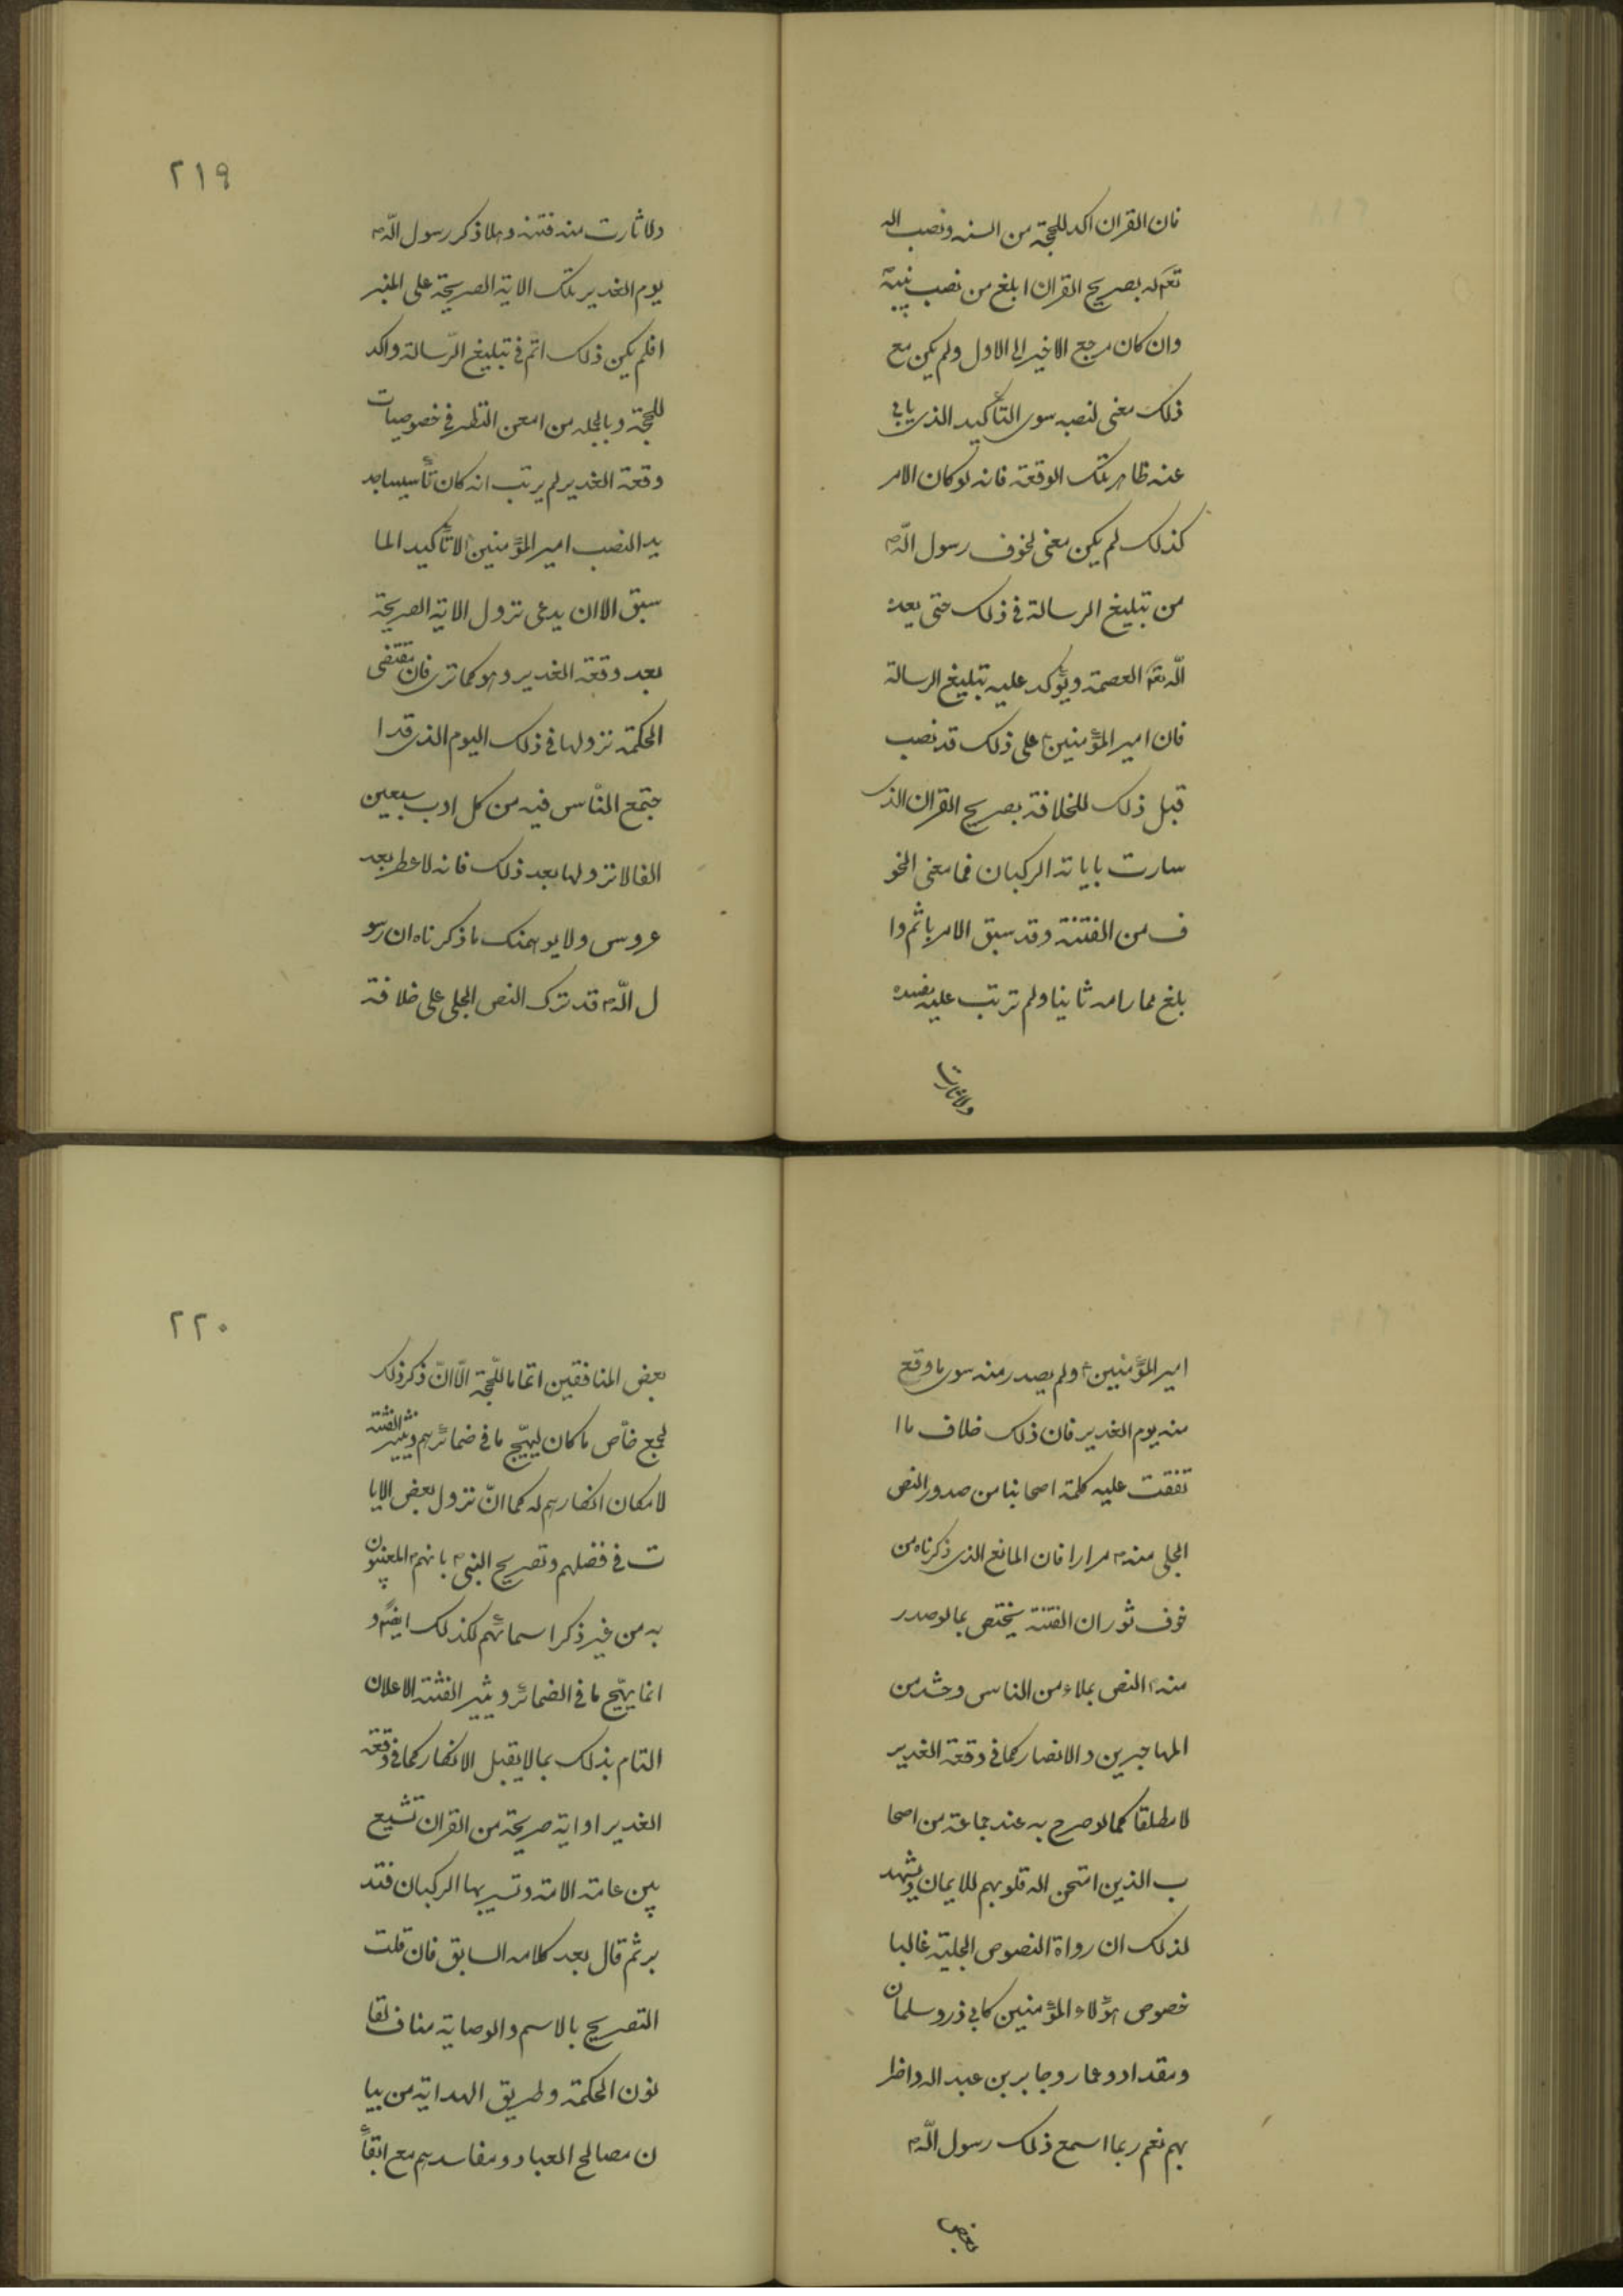 فان القران اكد للحجة من السنه ونصب الله
تعم له بصريح القران ابلغ من نصب نبيه
وان كان مرجع الاخير الى الاول ولم يكن مع
ذلك معنى لنصبه سوى التأكيد الذى يابى
عنه ظاهر تلك الوقعة فانه لو كان الامر
كذلك لم يكن معنى لخوف رسول اللّه ص
من تبليغ الرسالة فى ذلك حتى يعده
اللّه تعم العصمة ويؤكد عليه بتبليغ الرسالة
فان امير المؤمنين ع على ذلك قد نصب
قبل ذلك للخلافة بصريح القران الذى
سارت باياته الركبان فما معنى الخو
ف من الفتنة وقد سبق الامر باثم وا
بلغ مما رامه ثانيا ولم ترتب عليه مفسده
ولا ثارت
٢١٩
ولا ثارت منه فتنه وهلا ذكر رسول اللّه ص
يوم الغدير تلك الاية الصريحة على المنبر
افلم يكن ذلك اتم فى تبليغ الرّسالة واكد
للحجة وبالجمله من امعن النظر فى خصوصيات
وقعة الغدير لم يرتب انه كان تأسيسا جد
يد النصب امير المؤمنين ع لا تأكيد الما
سبق الا ان يدعى نزول الاية الصريحة
بعد وقعة الغدير وهو كما ترى فان مقتضى
الحكمة نزولها فى ذلك اليوم الذى قد ا
جتمع النّاس فيه من كل اوب سبعين
الفا لا نزولها بعد ذلك فانه لا عطر بعد
عروس ولا يوهمنك ما ذكرناه ان رسو
ل اللّه ص قد ترك النص الجلى على خلافة
امير المؤمنين ع ولم يصدر منه سوى ما وقع
منه يوم الغدير فان ذلك خلاف ما ا
تفقت عليه كلمة اصحابنا من صدور النص
الجلى منه ص مرارا فان المانع الذى ذكرناه من
خوف ثوران الفتنة يختص بما لو صدر
منه ص النص بملاء من الناس وحشد من
المهاجرين والانصار كما فى وقعة الغدير
لا مطلقا كما لو صرح به عند جماعة من اصحا
ب الذين امتحن الله قلوبهم للايمان ويشهد
لذلك ان رواة النصوص الجلية غالبا
خصوص هؤلاء المؤمنين كابى ذر وسلمان
ومقداد وعمار وجابر بن عبد الله واضرا
بهم نعم ربما اسمع ذلك رسول اللّه ص
بعض
٢٢٠
بعض المنافقين اتماما للّحجة الّا انّ ذكر ذلك
لجمع خاّص ما كان ليهيّج ما فى ضمائرهم ويثير الفتنة
لامكان انكارهم له كما انّ نزول بعض الايا
ت فى فضلهم وتصريح النبى ص بانهم المعنيون
به من غير ذكر اسمائهم لكذلك ايضً و
انما يهيّج ما فى الضمائر ويثير الفتنة الاعلان
التام بذلك بما لا يقبل الانكار كما فى وقعة
الغدير او اية صريحة من القران تشيع
بين عامة الامة وتسير بها الركبان فتد
بر ثم قال بعد كلامه السابق فان قلت
التصريح بالاسم والوصاية مناف لقا
نون الحكمة وطريق الهداية من بيا
ن مصالح العباد ومفاسدهم مع ابقأ